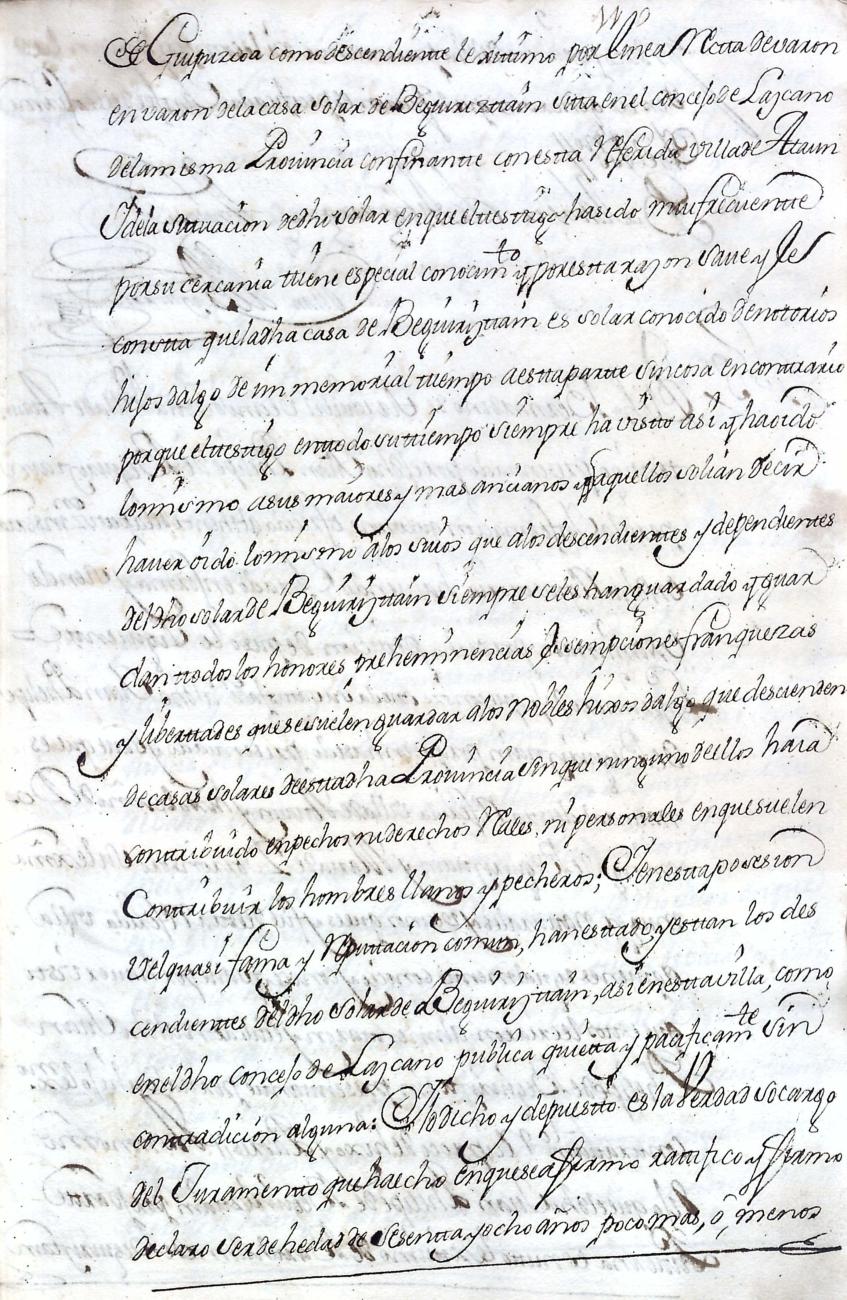 de Guipuzcoa como descendientte lexittimo por linea Rectta devaron
en varon dela casa solar de Beguiristtain sitta en el concejo de Lazcano
dela misma Provincia confinantte con estta Referida villa de Ataun
Y dela situacion de dho solar en que el testtigo ha sido mui frecuentte
por su cercania ttiene especial conocimto y por estta razon save y le
constta que la dha casa de Beguiristtain es solar conocido de nottorios
hijosdalgo de inmemorial ttiempo a estta partte sin cosa en conttrario
porque el testtigo en ttodo su ttiempo siempre ha vistto asi y ha oido
lo mismo a sus maiores y mas ancianos y aquellos solian decir
haver oido lo mismo alos suios que alos descendienttes y dependienttes
del dho solar de Beguiristtain siempre seles han guardado y guar
dan ttodos los honores preheminencias esempciones franquezas
y liberttades que se suelen guardar a los Nobles hixosdalgo que descienden
de casas solares de estta dha Provincia sin que ninguno de ellos haia
conttribuido en pechos ni derechos Rales, ni personales en que suelen
Conttribuir los hombres llanos y pecheros; Y en estta posesion
vel quasi fama y Reputtacion comun, han esttado, y esttan los des
cendienttes del dho solar de Beguiristtain, asi en estta villa, como
en el dho concejo de Lazcano publica quietta y pacificamte sin
conttradicion alguna: Y lo dicho y depuestto es la Verdad so cargo
del Juramentto que ha echo en que se afirmo rattifico y firmo
declaro ser de hedad de sesentta y ocho años poco mas, ó, menos